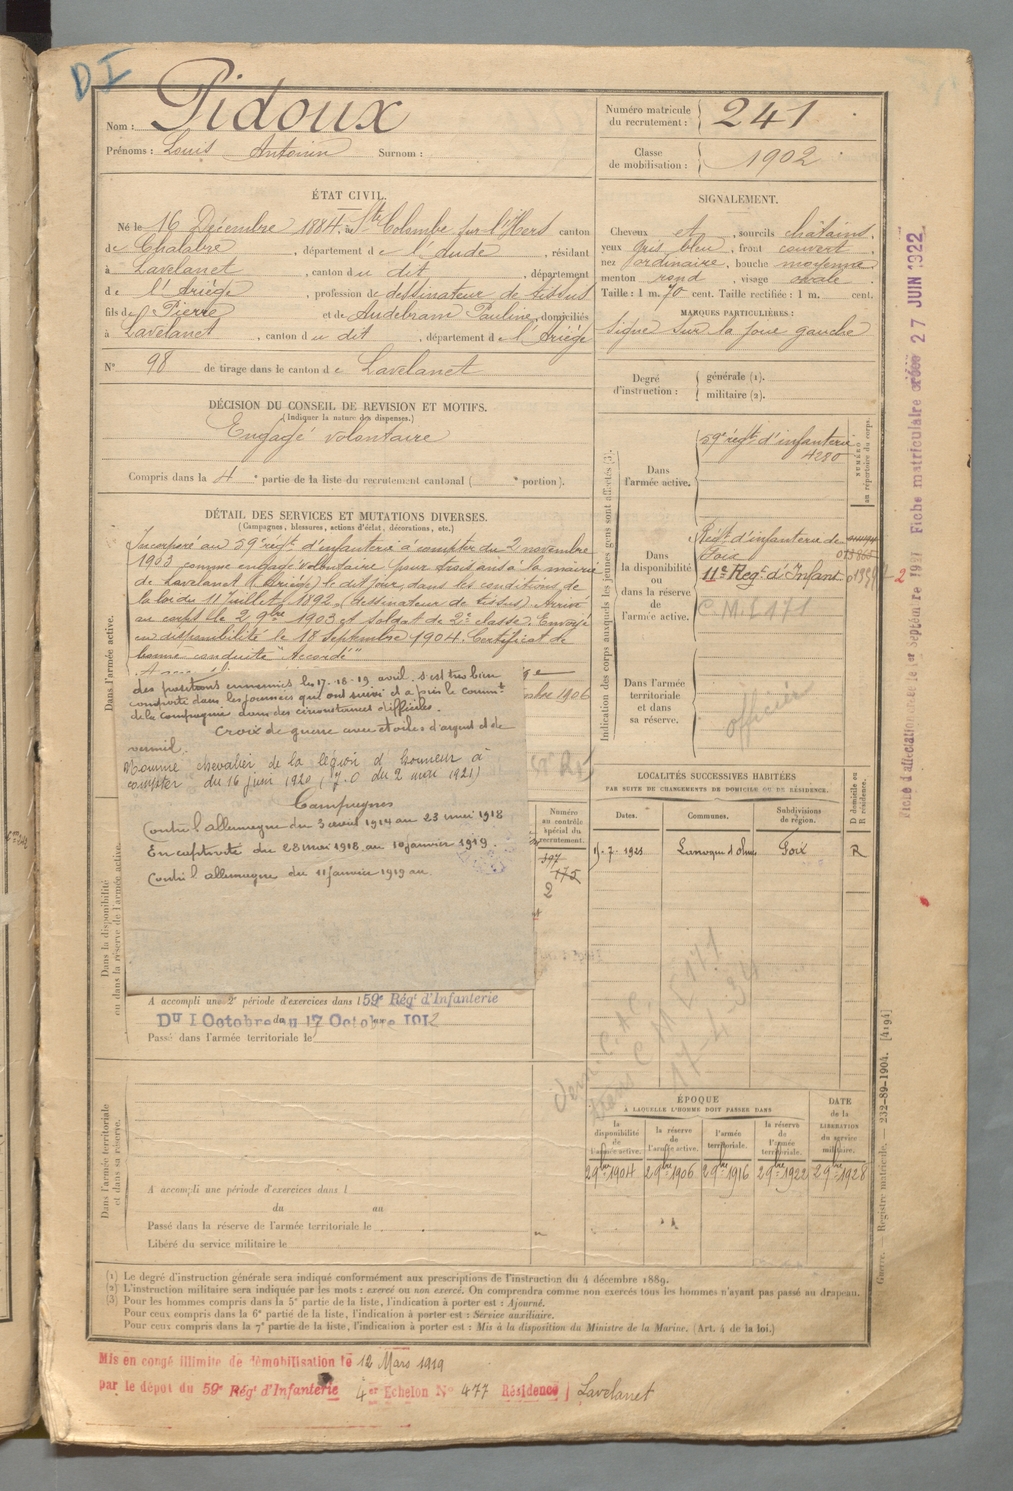 D I
Nom : Pidoux
Prénoms : Louis Antonin Surnom :
Numéro matricule du recrutement : 241
Classe de mobilisation : 1902
ÉTAT CIVIL.
Né le 16 Décembre 1884, à Ste Colombe sur l'Hers canton
de Chalabre, département de l'Aude, résidant
à Lavelanet, canton du dit, département
de l'Ariège, profession de dessinateur de tissus
fils de Pierre et de Audebram Pauline, domiciliés
à Lavelanet, canton du dit, département de l'Ariège
N° 98 de tirage dans le canton de Lavelanet
SIGNALEMENT.
Cheveux et, sourcils châtains,
yeux gris bleu, front couvert,
nez ordinaire, bouche moyenne,
menton rond, visage ovale.
Taille : 1 m. 70 cent. Taille rectifiée : 1 m. cent.
MARQUES PARTICULIÈRES :
Signe sur la joue gauche
Degré d'instruction : générale (1). militaire (2).
DÉCISION DU CONSEIL DE REVISION ET MOTIFS.
(Indiquer la nature des dispenses.)
Engagé volontaire
Compris dans la 4e partie de la liste du recrutement cantonal ( e portion).
DÉTAIL DES SERVICES ET MUTATIONS DIVERSES.
(Campagnes, blessures, actions d'éclat, décorations, etc.)
Dans l'armée active.
Incorporé au 59e régt d'infanterie à compter du 2 novembre
1903 comme engagé volontaire pour trois ans à la mairie
de Lavelanet (Ariège) le dit jour, dans les conditions de
la loi du 11 Juillet 1892 (dessinateur de tissus) Arrivé
au corps le 2 9bre 1903 et soldat de 2e classe. Envoyé
en disponibilité le 18 Septembre 1904. Certificat de
bonne conduite "Accordé"
1906
des positions ennemies les 17-18-19 avril. s'est très bien
conduite dans les journées qui ont suivi et a pris le commt
de la compagnie dans des circonstances difficiles.
Croix de guerre avec étoiles d'argent et de
vermeil.
Nommé chevalier de la légion d'honneur à
compter du 16 juin 1920 (J.O du 2 mars 1921)
Campagnes
Contre l'allemagne du 3 août 1914 au 23 mai 1918
En captivité du 28 mai 1918 au 10 janvier 1919.
Contre l'allemagne du 11 janvier 1919 au
Dans la disponibilité ou dans la réserve de l'armée active.
A accompli une 2e période d'exercices dans l 59e Régt d'Infanterie
Du 1 Octobre au 17 Octobre 1912
Passé dans l'armée territoriale le
Dans l'armée territoriale et dans sa réserve.
A accompli une période d'exercices dans l
du au
Passé dans la réserve de l'armée territoriale le
Libéré du service militaire le
Numéro au contrôle spécial du recrutement.
397
175
2
Indication des corps auxquels les jeunes gens sont affectés (3).
NUMÉRO au répertoire du corps.
Dans l'armée active.
59e régt d'infanterie
4280
Dans la disponibilité ou dans la réserve de l'armée active.
Régt d'infanterie de
Foix
11e Régt d'Infant
C.M.E 171
Dans l'armée territoriale et dans sa réserve.
officier
LOCALITÉS SUCCESSIVES HABITÉES
PAR SUITE DE CHANGEMENTS DE DOMICILE OU DE RÉSIDENCE.
Dates. Communes. Subdivisions de région. D domicile ou R résidence.
7-1921 Laroque d'Olmes Foix R
C M E 171
17-4-34
ÉPOQUE
À LAQUELLE L'HOMME DOIT PASSER DANS
la disponibilité de l'armée active. la réserve de l'armée active. l'armée territoriale. la réserve de l'armée territoriale. DATE de la LIBÉRATION du service militaire.
2 9bre 1904 2 9bre 1906 2 9bre 1916 2 9bre 1922 2 9bre 1928
(1) Le degré d'instruction générale sera indiqué conformément aux prescriptions de l'instruction du 4 décembre 1889.
(2) L'instruction militaire sera indiquée par les mots : exercé ou non exercé. On comprendra comme non exercés tous les hommes n'ayant pas passé au drapeau.
(3) Pour les hommes compris dans la 5e partie de la liste, l'indication à porter est : Ajourné.
Pour ceux compris dans la 6e partie de la liste, l'indication à porter est : Service auxiliaire.
Pour ceux compris dans la 7e partie de la liste, l'indication à porter est : Mis à la disposition du Ministre de la Marine. (Art. 4 de la loi.)
Mis en congé illimité de démobilisation le 12 Mars 1919
par le dépôt du 59e Régt d'Infanterie 4er Echelon N° 477 Résidence Lavelanet
Fiche matriculaire créée 27 JUIN 1922
Guerre. — Registre matricule. — 232-89-1904. [4194]